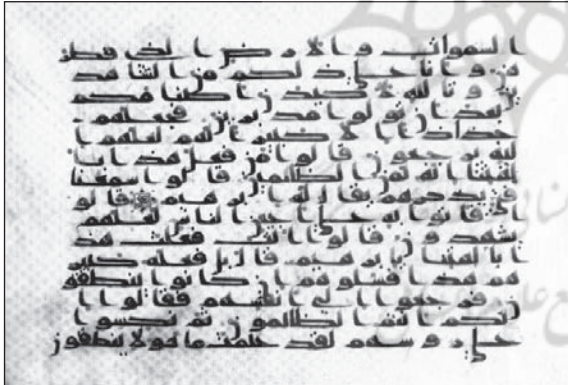 السموات والارض الذي فطر
هن وانا على ذلكم من الشهد
ين وتالله لاكيدن اصنمكم
بعد ان تولوا مدبرين فجعلهم
جذذا الا كبيرا لهم لعلهم ا
ليه يرجعون قالوا من فعل هذا با
لهتنا انه لمن الظلمين قالوا سمعنا
فتى يذكرهم يقال له ابرهيم قالو
ا فاتوا به على اعين الناس لعلهم
يشهدون قالوا انت فعلت هذ
ا بالهتنا يابرهيم قال بل فعله كبير
هم هذا فسلوهم ان كانوا ينطقو
ن فرجعوا الى انفسهم فقالوا ا
نكم انتم الظلمون ثم نكسوا
على روسهم لقد علمت ما هولا ينطقون